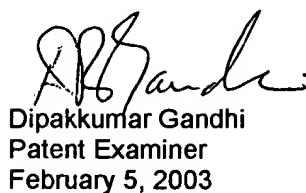 Dipakkumar Gandhi
Patent Examiner
February 5, 2003